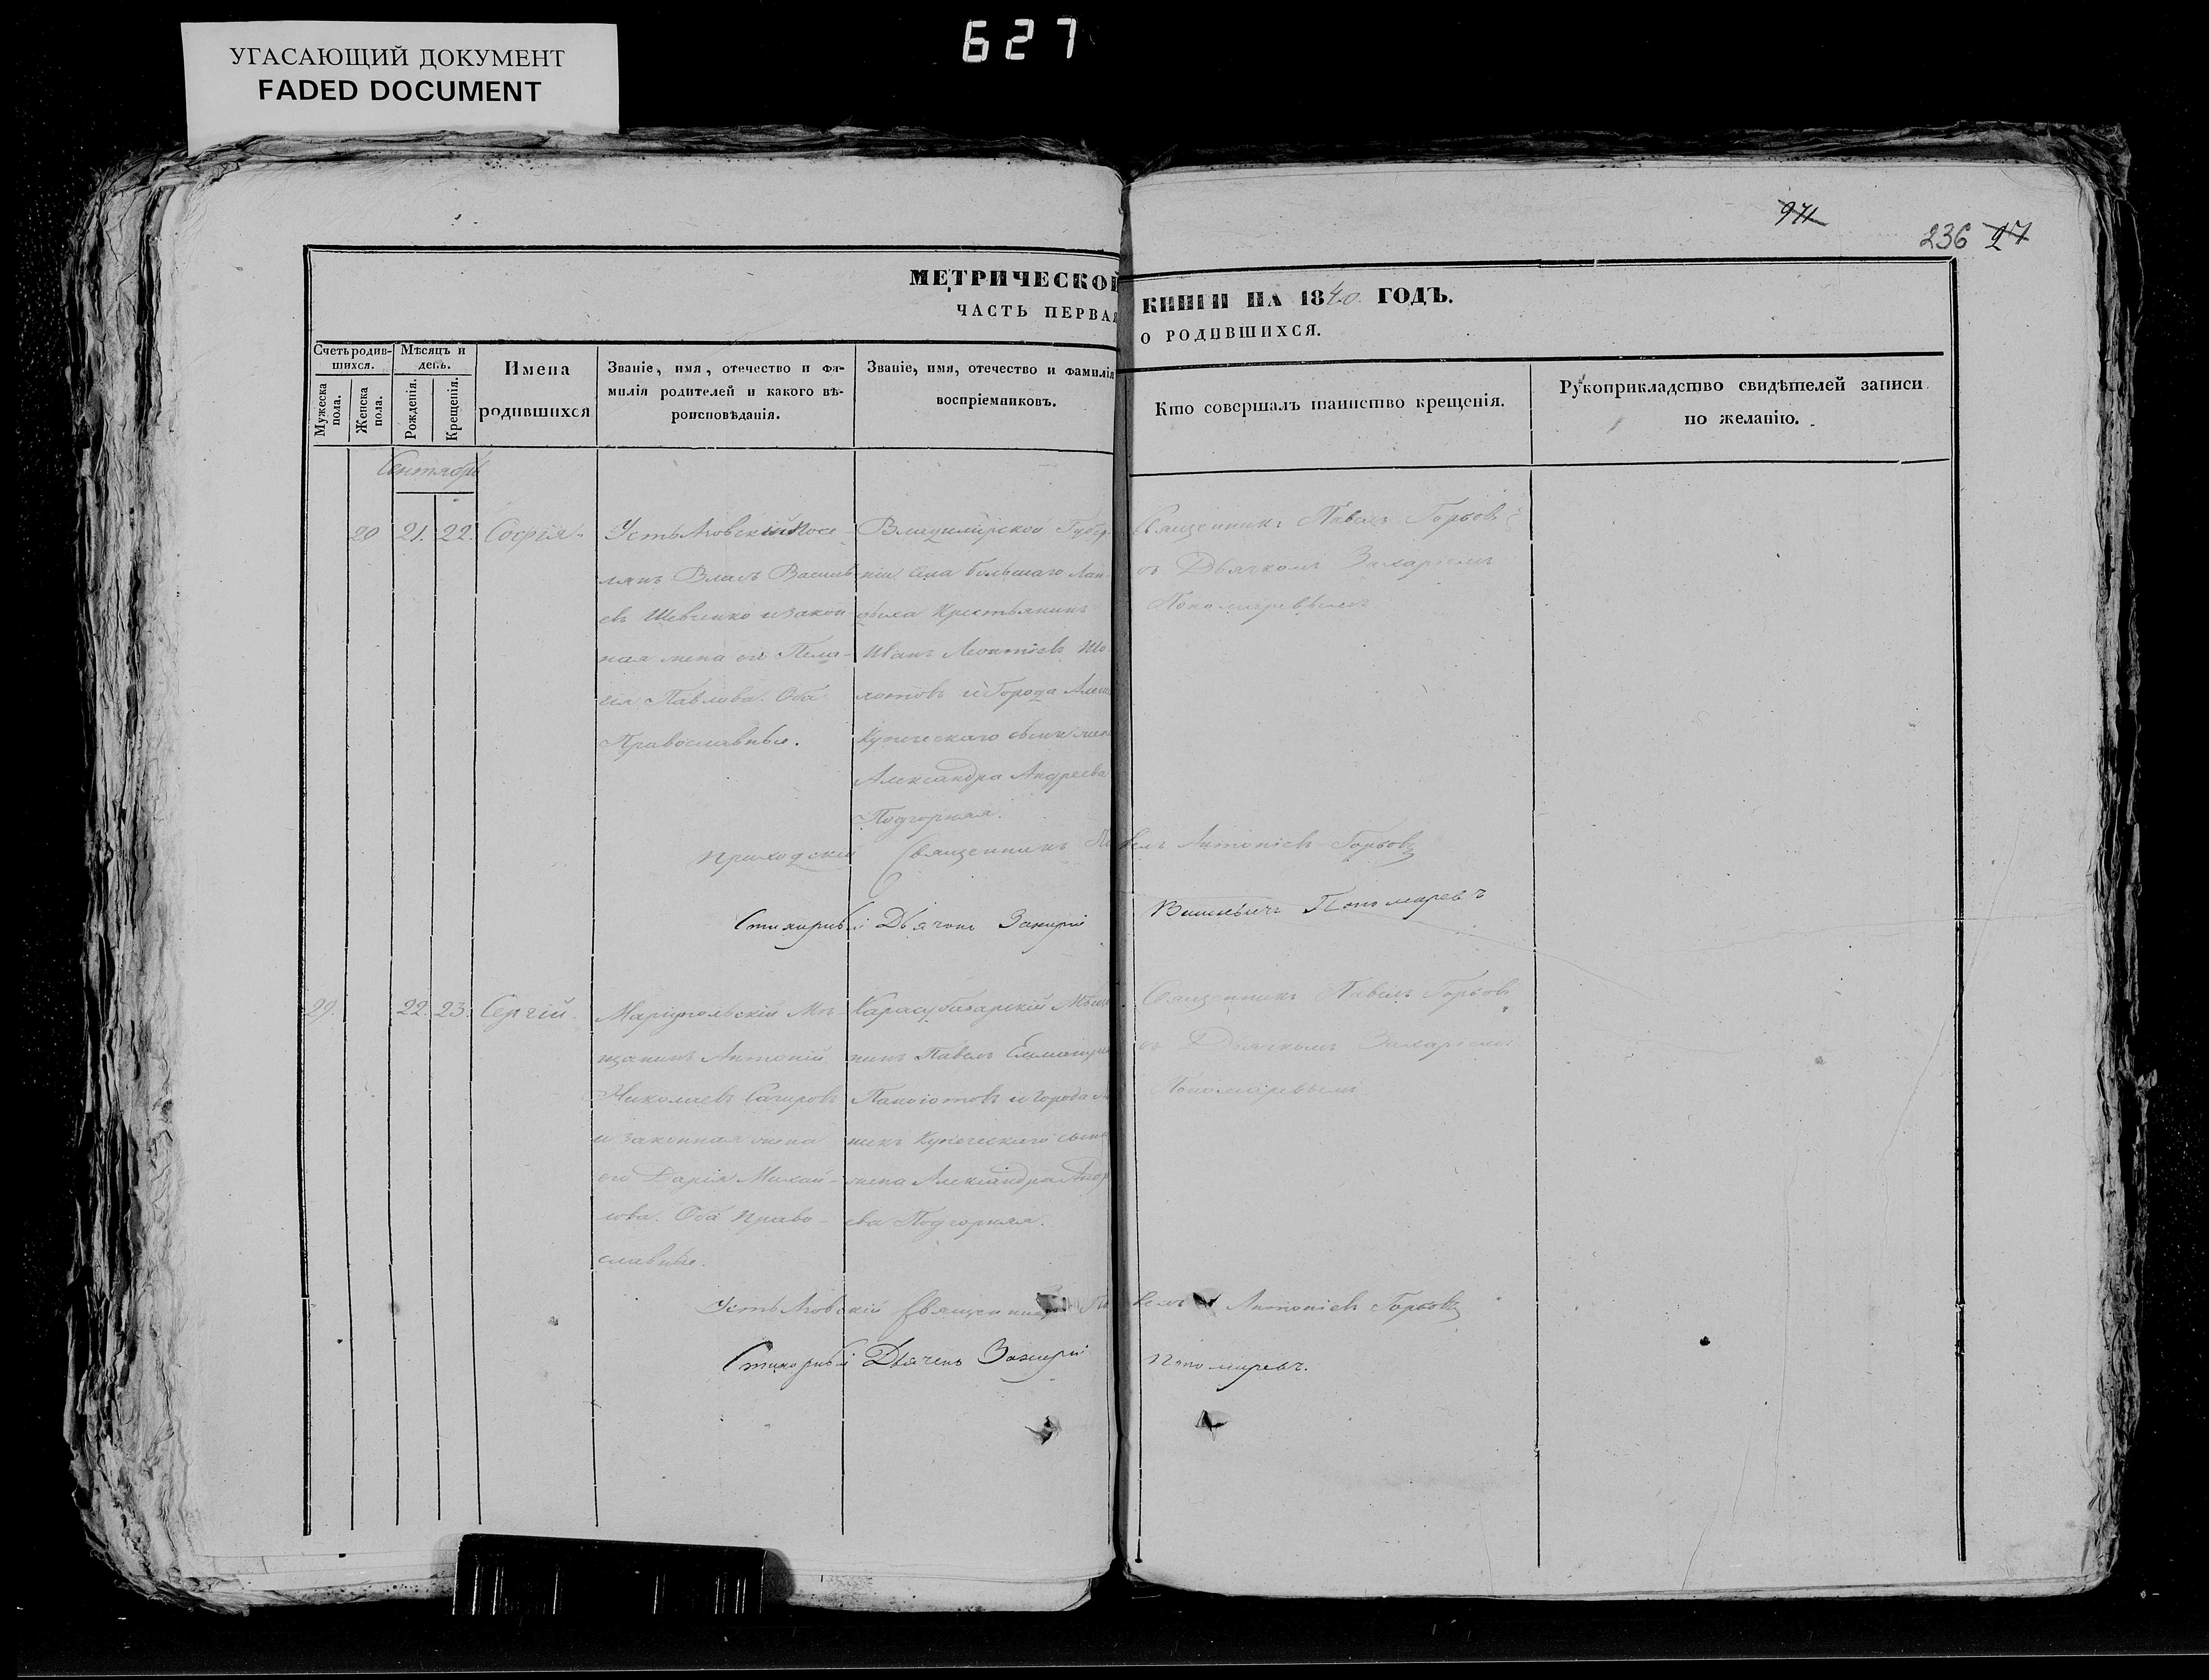 УГАСАЮЩИЙ ДОКУМЕНТ
FADED DOCUMENT
627
971
236 27
МЕТРИЧЕСКОЙ КНИГИ НА 1840 ГОДЪ.
ЧАСТЬ ПЕРВАЯ О РОДИВШИХСЯ.
Счетъ родив-
шихся.
Мужеска пола.
Женска пола.
Мѣсяцъ и
день.
Рожденія.
Крещенія.
Имена
родившихся
Званіе, имя, отечество и фа-
милія родителей и какого вѣ-
роисповѣданія.
Званіе, имя, отечество и фамилія
воспріемниковъ.
Кто совершалъ таинство крещенія.
Рукоприкладство свидѣтелей записи
по желанію.
Сентябрь
20 21. 22. Софія.
Усть Азовскій посе-
лянъ Власъ Василь
евъ Шевченко и закон-
ная жена его Пела-
гія Павлова. Оба
Православные.
Владимірской Губер
ніи села большаго Лан
деха Крестьянинъ
Иванъ Леонтіевъ
и Города
Купеческаго сына жена
Александра Андреева
Подгорная.
Священникъ Павелъ Горбовъ
съ Дьячкомъ Захаріемъ
Пономаревымъ
Приходскій Священникъ Павелъ Антоніевъ Горбовъ
Стихарный Дьячокъ Захарій Пономаревъ
29. 22. 23. Сергій.
Маріупольскій Мѣ-
щанинъ Антоній
Николаевъ Сагировъ
и законная жена
его Дарія Михай-
лова. Оба Право-
славные.
Карасубазарскій Мѣща
нинъ Павелъ Еммануи
Панаіотовъ и Города
Купеческаго сына
жена Александра Андр
ева Подгорная.
Священникъ Павелъ Горбовъ
съ Дьячкомъ Захаріемъ
Пономаревымъ
Усть Азовскій Священникъ Павелъ Антоніевъ Горбовъ
Стихарный Дьячекъ Захарій Пономаревъ.